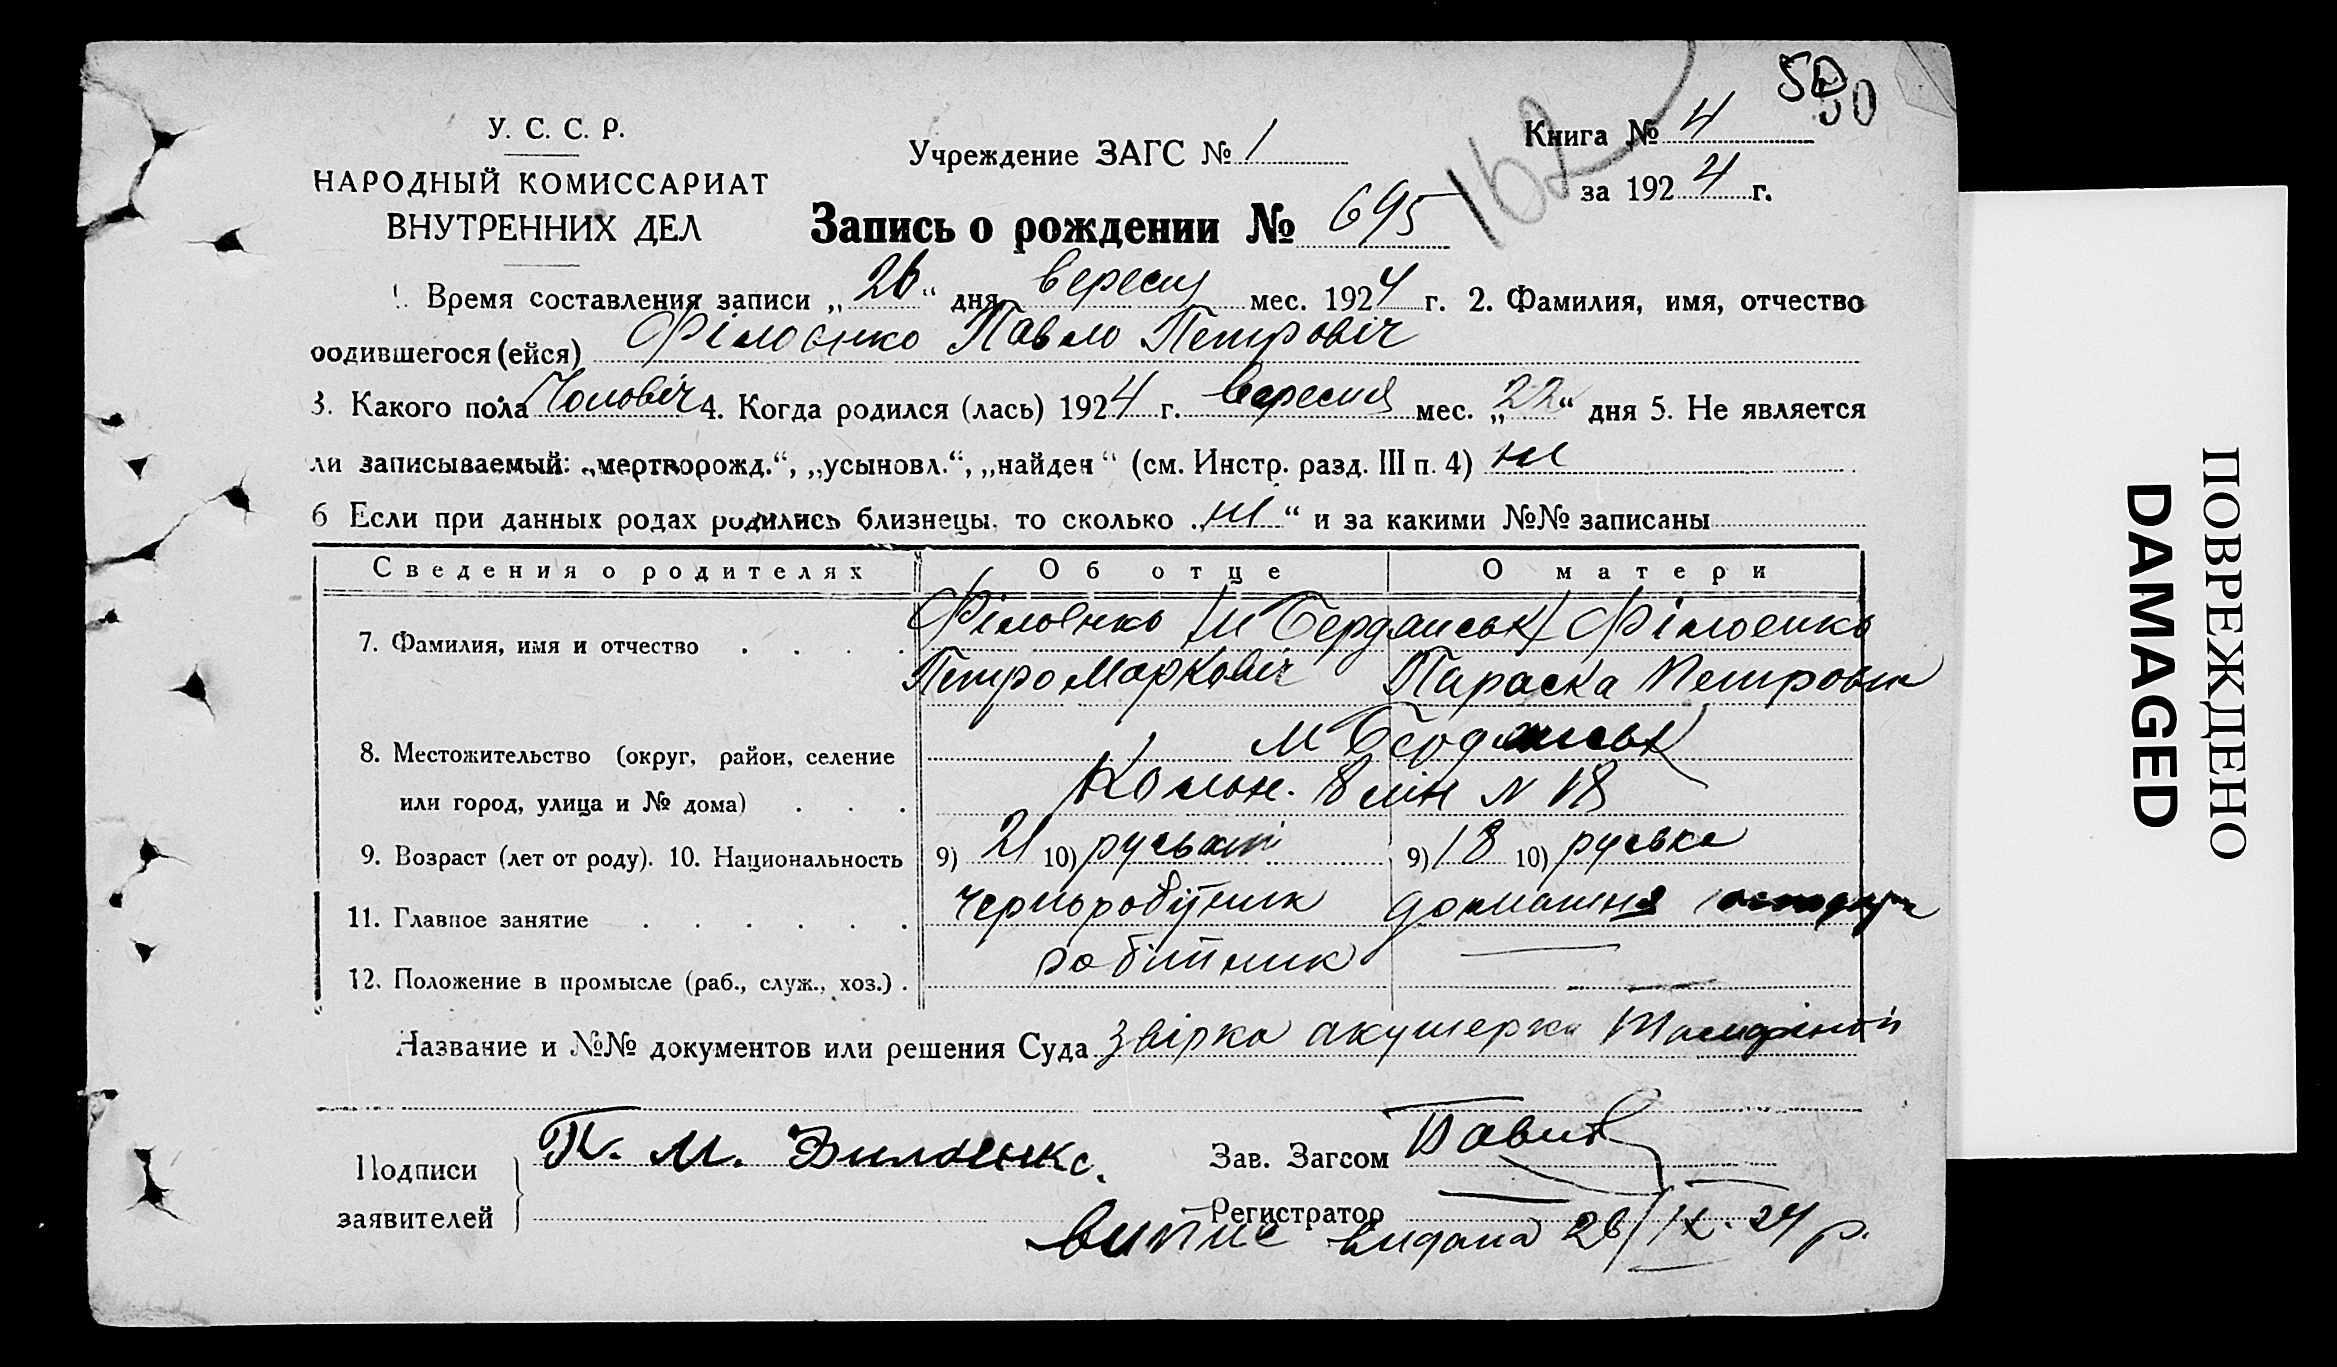 50
50
У. С. С. Р.
НАРОДНЫЙ КОМИССАРИАТ
ВНУТРЕННИХ ДЕЛ
Учреждение ЗАГС № 1
Книга № 4
за 1924 г.
162
Запись о рождении № 695
1. Время составления записи „26“ дня вересня мес. 1924 г. 2. Фамилия, имя, отчество
родившегося (ейся) Філоенко Павло Петровіч
3. Какого пола Чоловіч 4. Когда родился (лась) 1924 г. вересня мес. „22“ дня 5. Не является
ли записываемый: „мертворожд.“, „усыновл.“, „найден“ (см. Инстр. разд. III п. 4) ні
6 Если при данных родах родились близнецы, то сколько „ні“ и за какими №№ записаны
Сведения о родителях Об отце О матери
7. Фамилия, имя и отчество Філоенко /м Бердянськ/ Філоенко
Петро Маркович Параска Петровн
8. Местожительство (округ, район, селение м Бердянськ
или город, улица и № дома) Колон. 8 лін N 18
9. Возраст (лет от роду). 10. Национальность 9) 21 10) руський 9) 18 10) руська
11. Главное занятие черноробітник домашня
12. Положение в промысле (раб., служ., хоз.) робітник —
Название и №№ документов или решения Суда Звірка акушерки
Подписи
заявителей
П. М. Филоенко.
Зав. Загсом
Регистратор
випис видана 26/IX-24 р.
ПОВРЕЖДЕНО
DAMAGED